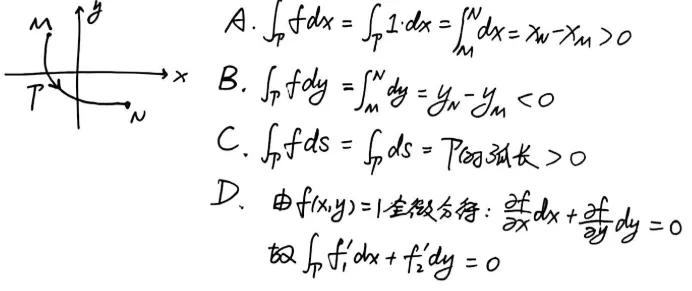 M
y
x
T
N
A. ∫_T f dx = ∫_T 1·dx = ∫_M^N dx = x_N - x_M > 0
B. ∫_T f dy = ∫_M^N dy = y_N - y_M < 0
C. ∫_T f ds = ∫_T ds = T的弧长 > 0
D. 由f(x,y)=1全微分得: ∂f/∂x dx + ∂f/∂y dy = 0
故 ∫_T f₁'dx + f₂'dy = 0